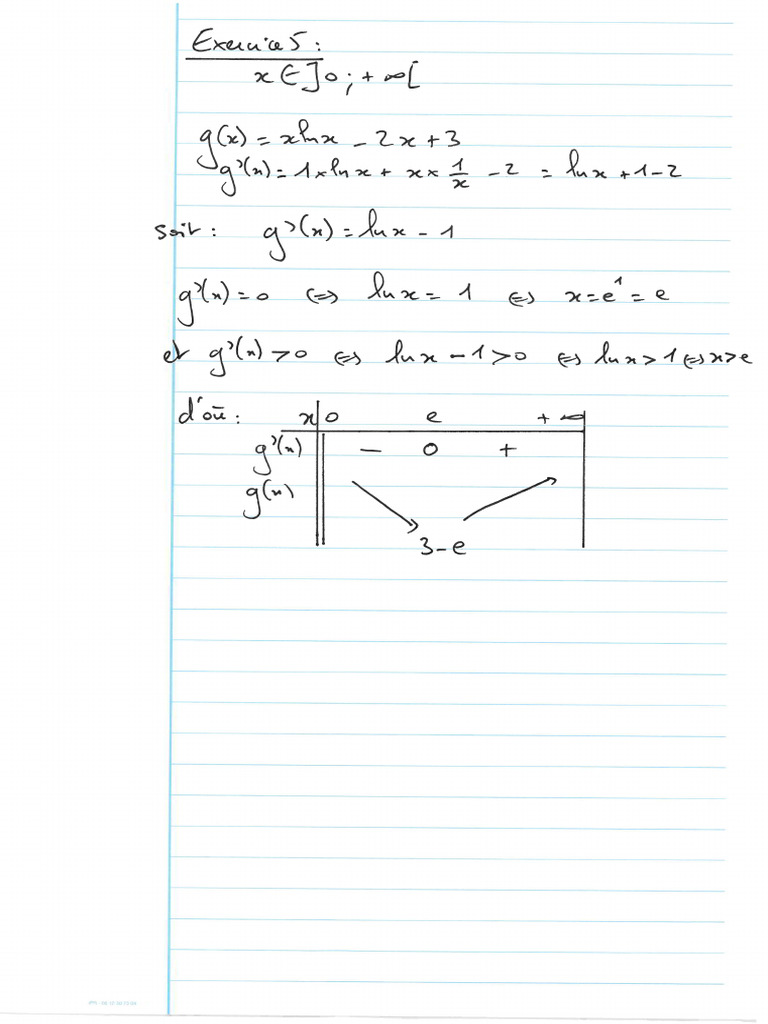 Exercice 5 :
x ∈ ]0 ; + ∞[
g(x) = x ln x - 2x + 3
g'(x) = 1 × ln x + x × 1/x - 2 = ln x + 1 - 2
soit : g'(x) = ln x - 1
g'(x) = 0 ⇔ ln x = 1 ⇔ x = e¹ = e
et g'(x) > 0 ⇔ ln x - 1 > 0 ⇔ ln x > 1 ⇔ x > e
d'où : x 0 e + ∞
g'(x) - 0 +
g(x)
3 - e